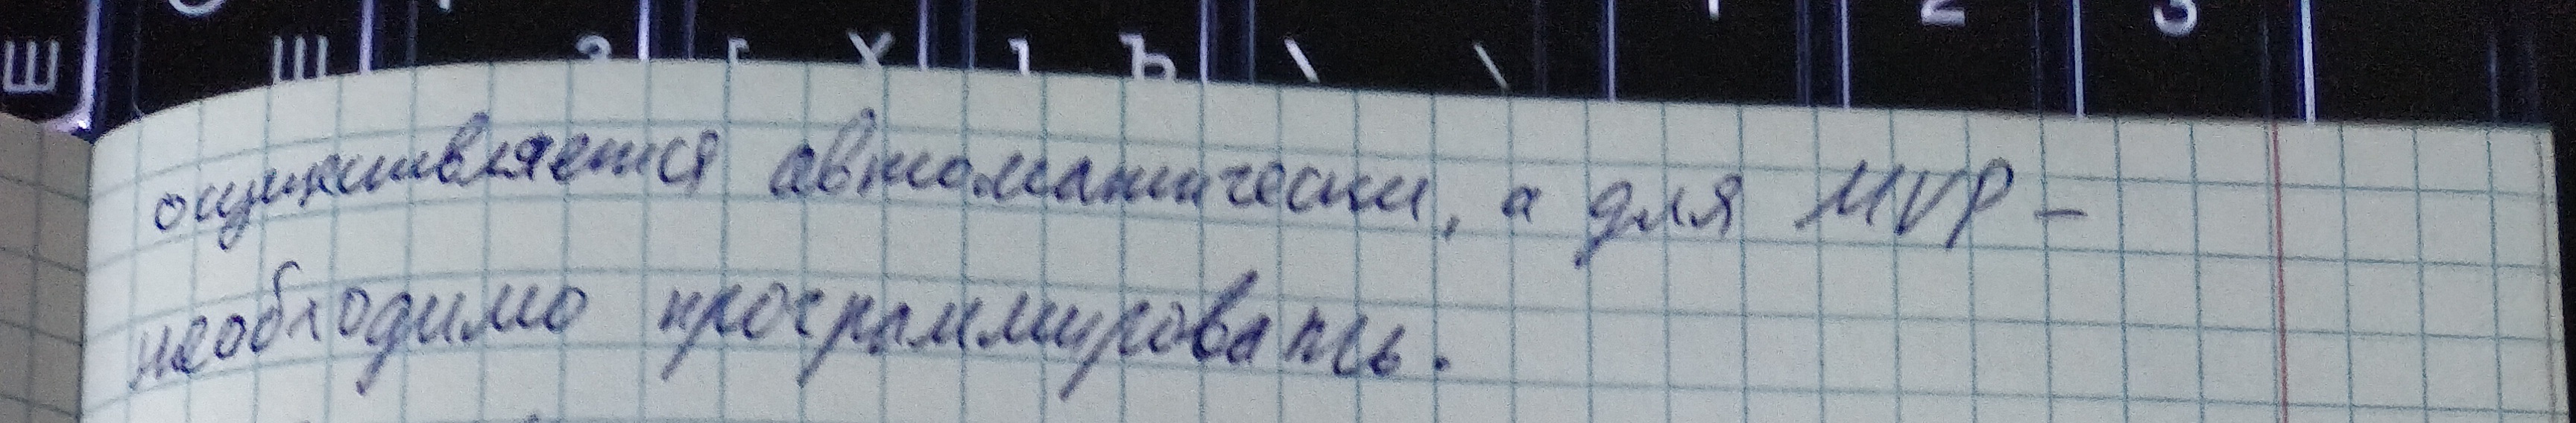 Ш Щ Х Ъ \ 2 3
осуществляется автоматически, а для MVP –
необходимо программировать.